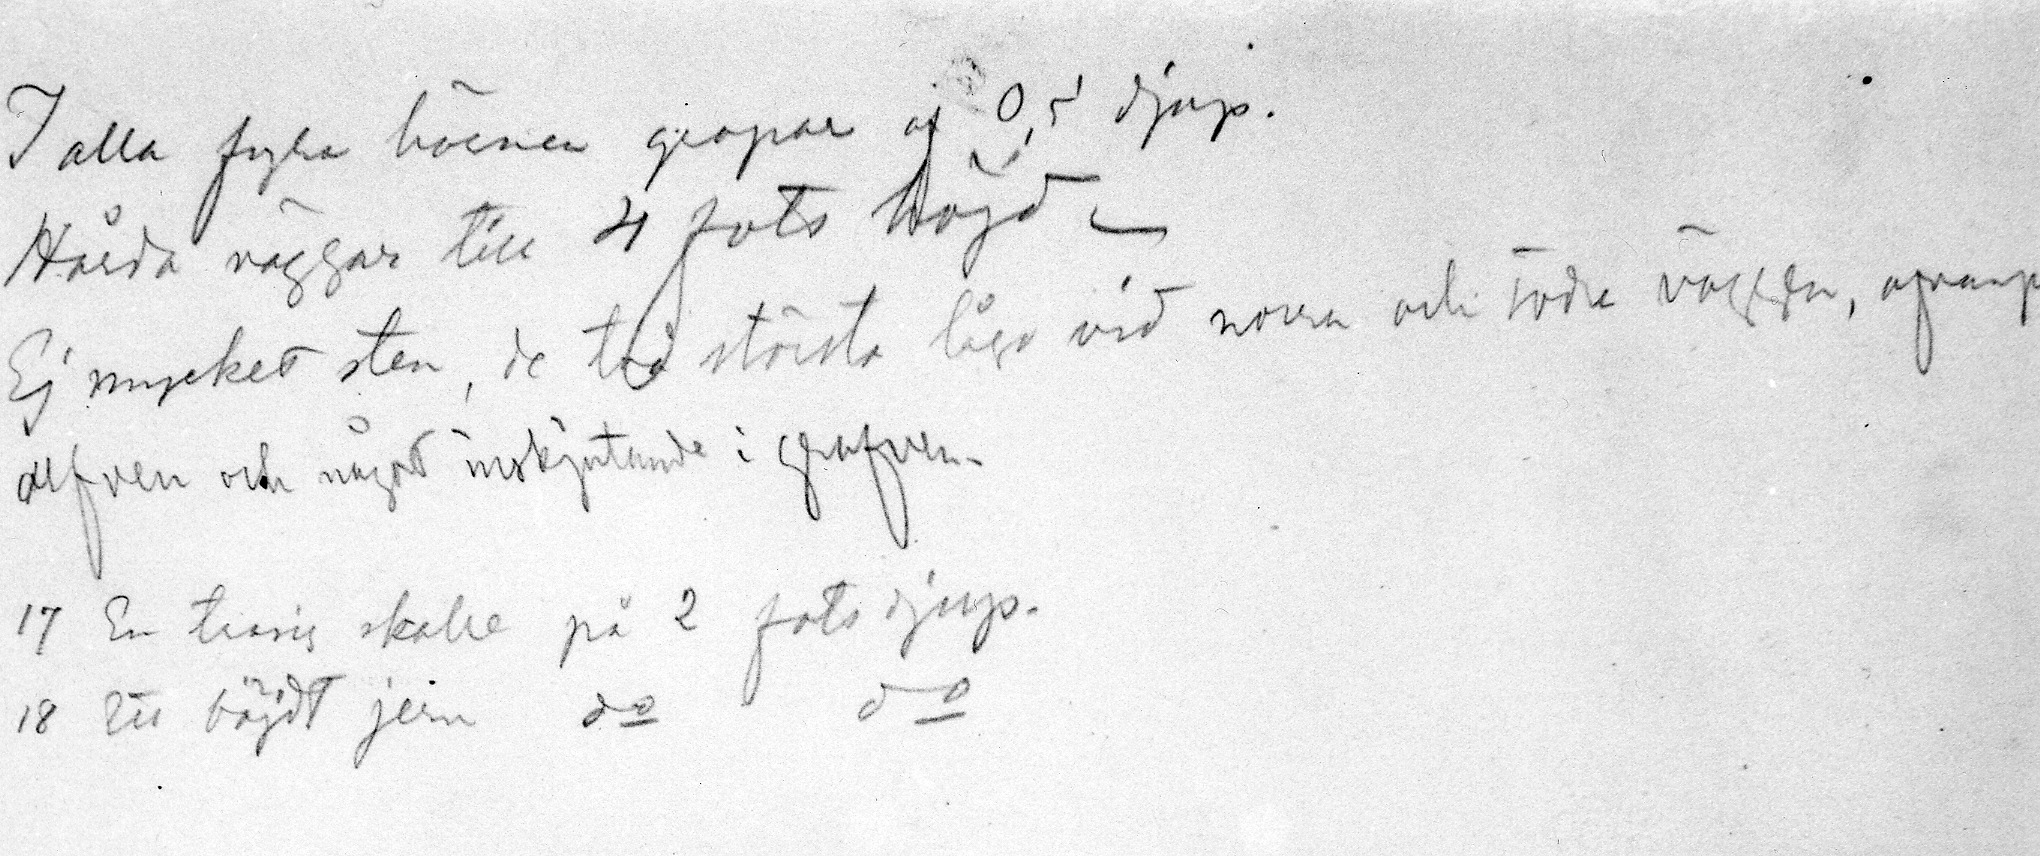 I alla fyra hörnen gropar af 0,5' djup.
Hårda väggar till 4 fots höjd
Ej mycket sten, de två största lågo vid norra och södra väggen,
och något inskjutande i grafven.
17 En trasig skalle på 2 fots djup.
18 Ett böjdt jern do do